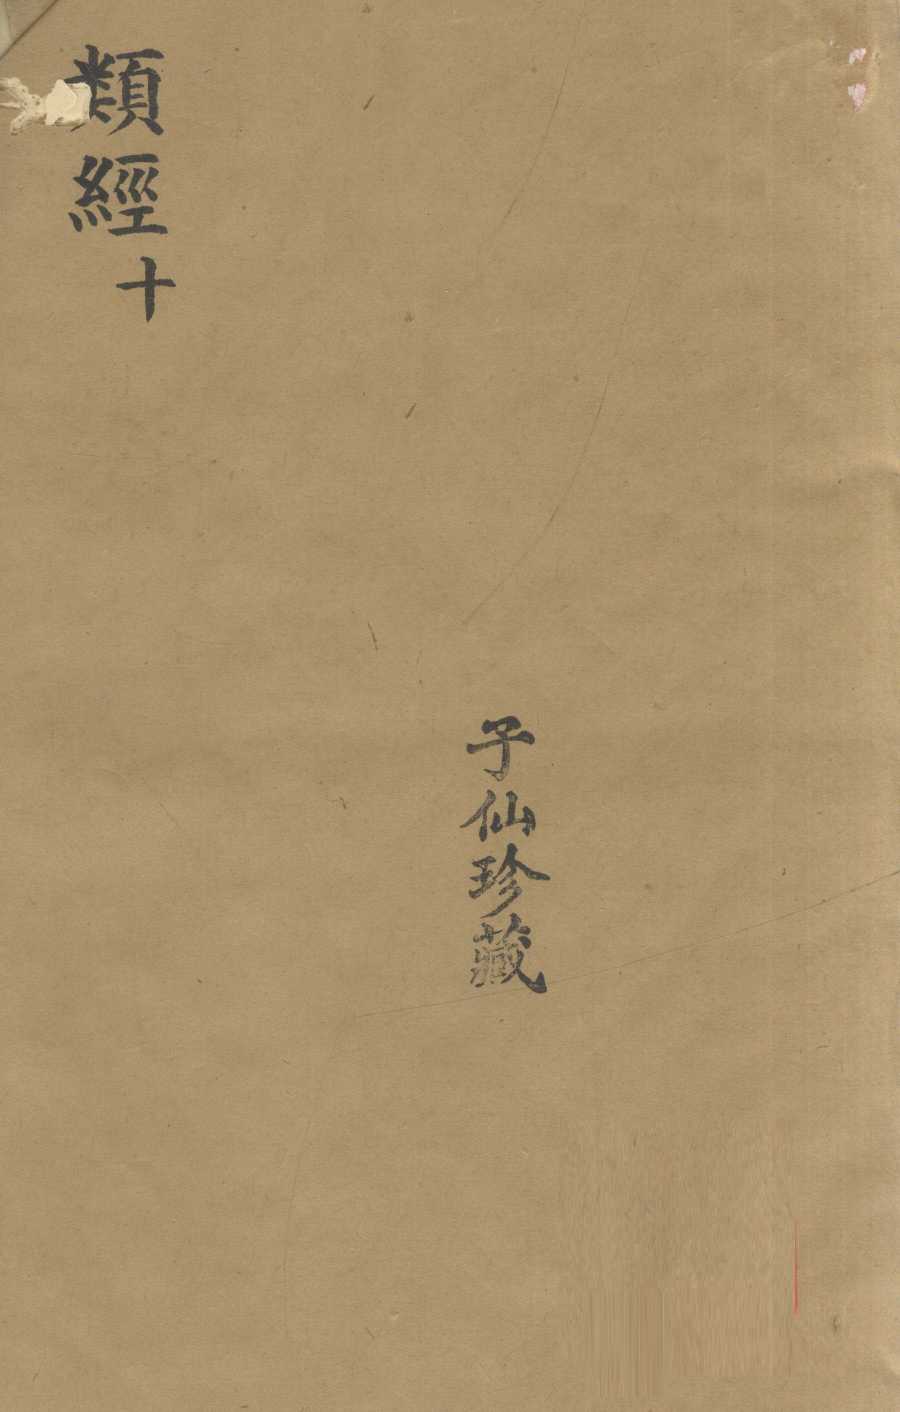 類經十
子仙珍藏